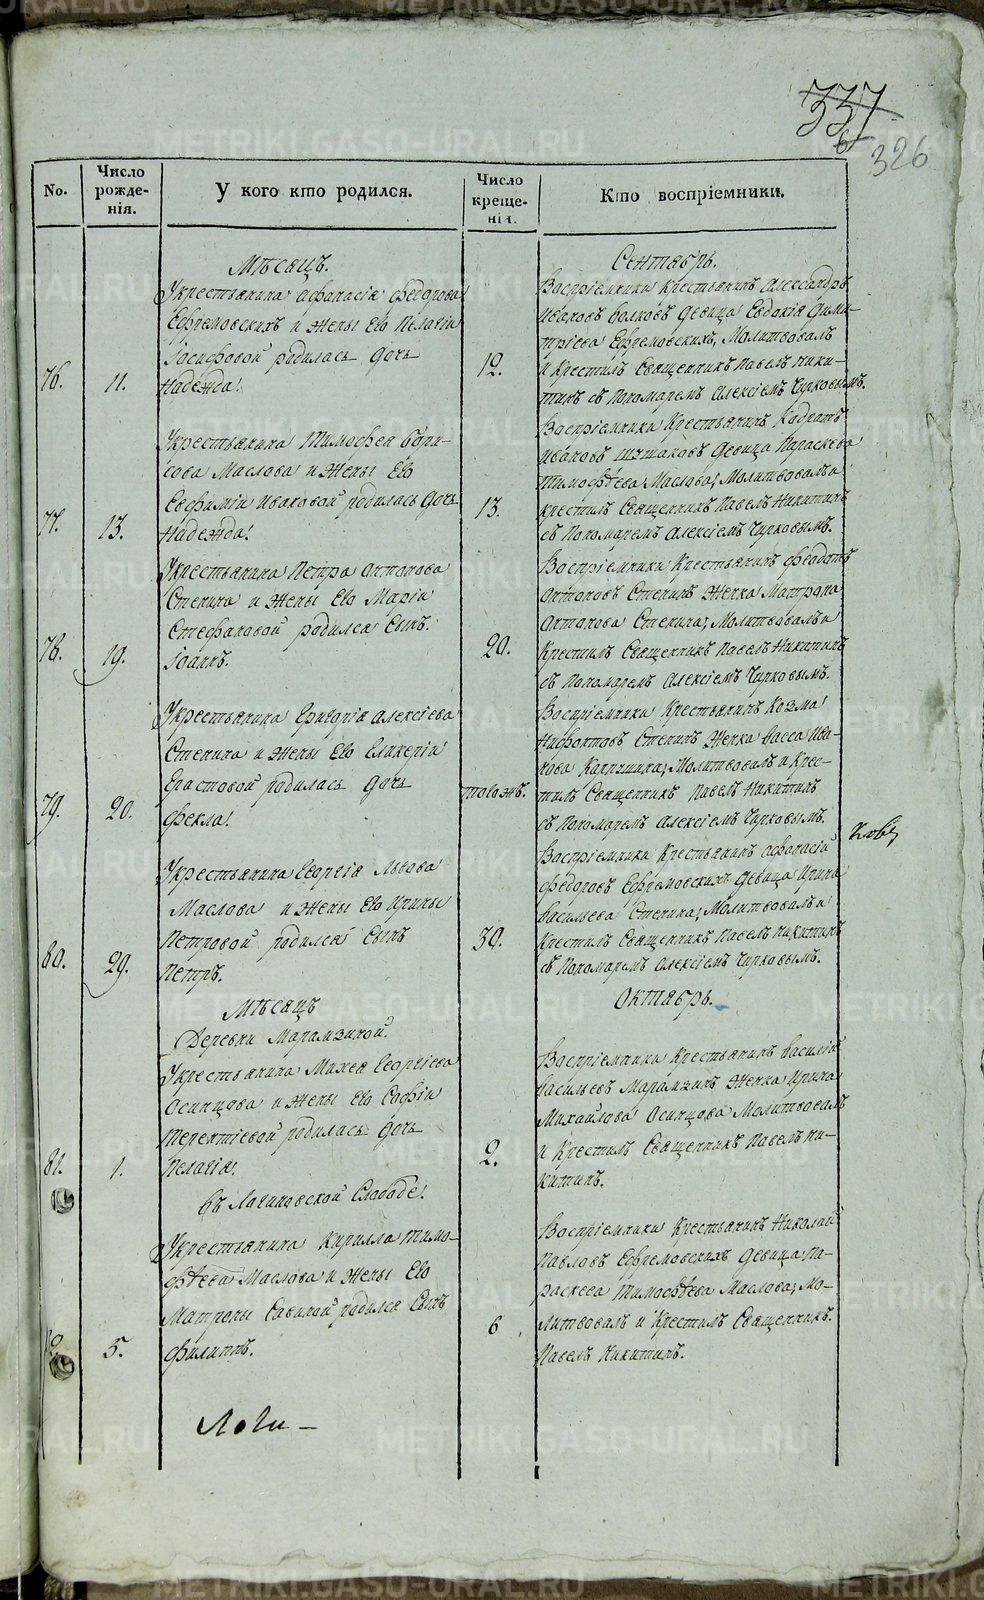 337
6
326
No.
Число рожде-нія.
У кого кто родился.
Число креще-нія.
Кто воспріемники.
Мѣсяцъ.
Сентябрь.
76.
11.
Укрестьянина Афанасія Федорова
Ефремовскихъ и жены Его Пелагіи
Іосифовой родилась дочь
Надежда!
12.
Воспріемники Крестьянинъ Александръ
Ивановъ Волковъ девица Евдокія Дими-
тріева Ефремовскихъ, Молитвовалъ
и Крестилъ Священникъ Павелъ Ники-
тинъ съ Пономаремъ Алексіемъ Чирковымъ.
77.
13.
Укрестьянина Тимофея Бори-
сова Маслова и жены Его
Евфиміи Ивановой родилась дочь
Надежда!
13.
Воспріемники Крестьянинъ Кодратъ
Ивановъ девица Параскева
Тимофѣева Маслова; Молитвовалъ и
крестилъ Священникъ Павелъ Никитинъ
съ Пономаремъ Алексіемъ Чирковымъ.
78.
19.
Укрестьянина Петра Антонова
Степина и жены Его Маріи
Стефановой родился сынъ.
Іоаннъ.
20.
Воспріемники Крестьянинъ Феодотъ
Антоновъ Степинъ женка Матрона
Антонова Степина; Молитвовалъ и
Крестилъ Священникъ Павелъ Никитинъ
съ Пономаремъ Алексіемъ Чирковымъ.
79.
20.
Укрестьянина Григорія Алексіева
Степина и жены Его Гликеріи
Ерастовой родилась дочь
Фекла!
тогожъ.
Воспріемники Крестьянинъ Козма
Нифонтовъ Степинъ женка Васса Ива-
нова Молитвовалъ и Крес-
тилъ Священникъ Павелъ Никитинъ
съ Пономаремъ Алексіемъ Чирковымъ.
80.
29.
Укрестьянина Георгія Львова
Маслова и жены Его Ирины
Петровой родился Сынъ
Петръ.
30.
Воспріемники Крестьянинъ Афанасій
Федоровъ Ефремовскихъ девица Ирина
Васильева Степина; Молитвовалъ и
Крестилъ Священникъ Павелъ Никитинъ
съ Пономаремъ Алексіемъ Чирковымъ.
Мѣсяцъ
Октябрь.
Деревни Марамзиной.
81.
1.
Укрестьянина Михея Георгіева
Осинцова и жены Его Софіи
Терентіевой родилась дочь
Пелагія!
2.
Воспріемники Крестьянинъ Василій
Васильевъ Марамзинъ женка Ирина
Михайлова Осинцова Молитвовалъ
и Крестилъ Священникъ Павелъ Ни-
китинъ.
въ Логиновской Слободе!
5.
Укрестьянина Кирилла Тимо-
фѣева Маслова и жены Его
Матроны Савиной родился Сынъ
Филиппъ.
6
Воспріемники Крестьянинъ Николай
Павловъ Ефремовскихъ девица Па-
раскева Тимофѣева Маслова; Мо-
литвовалъ и Крестилъ Священникъ.
Павелъ Никитинъ.
Логи-
METRIKI.GASO-URAL.RU